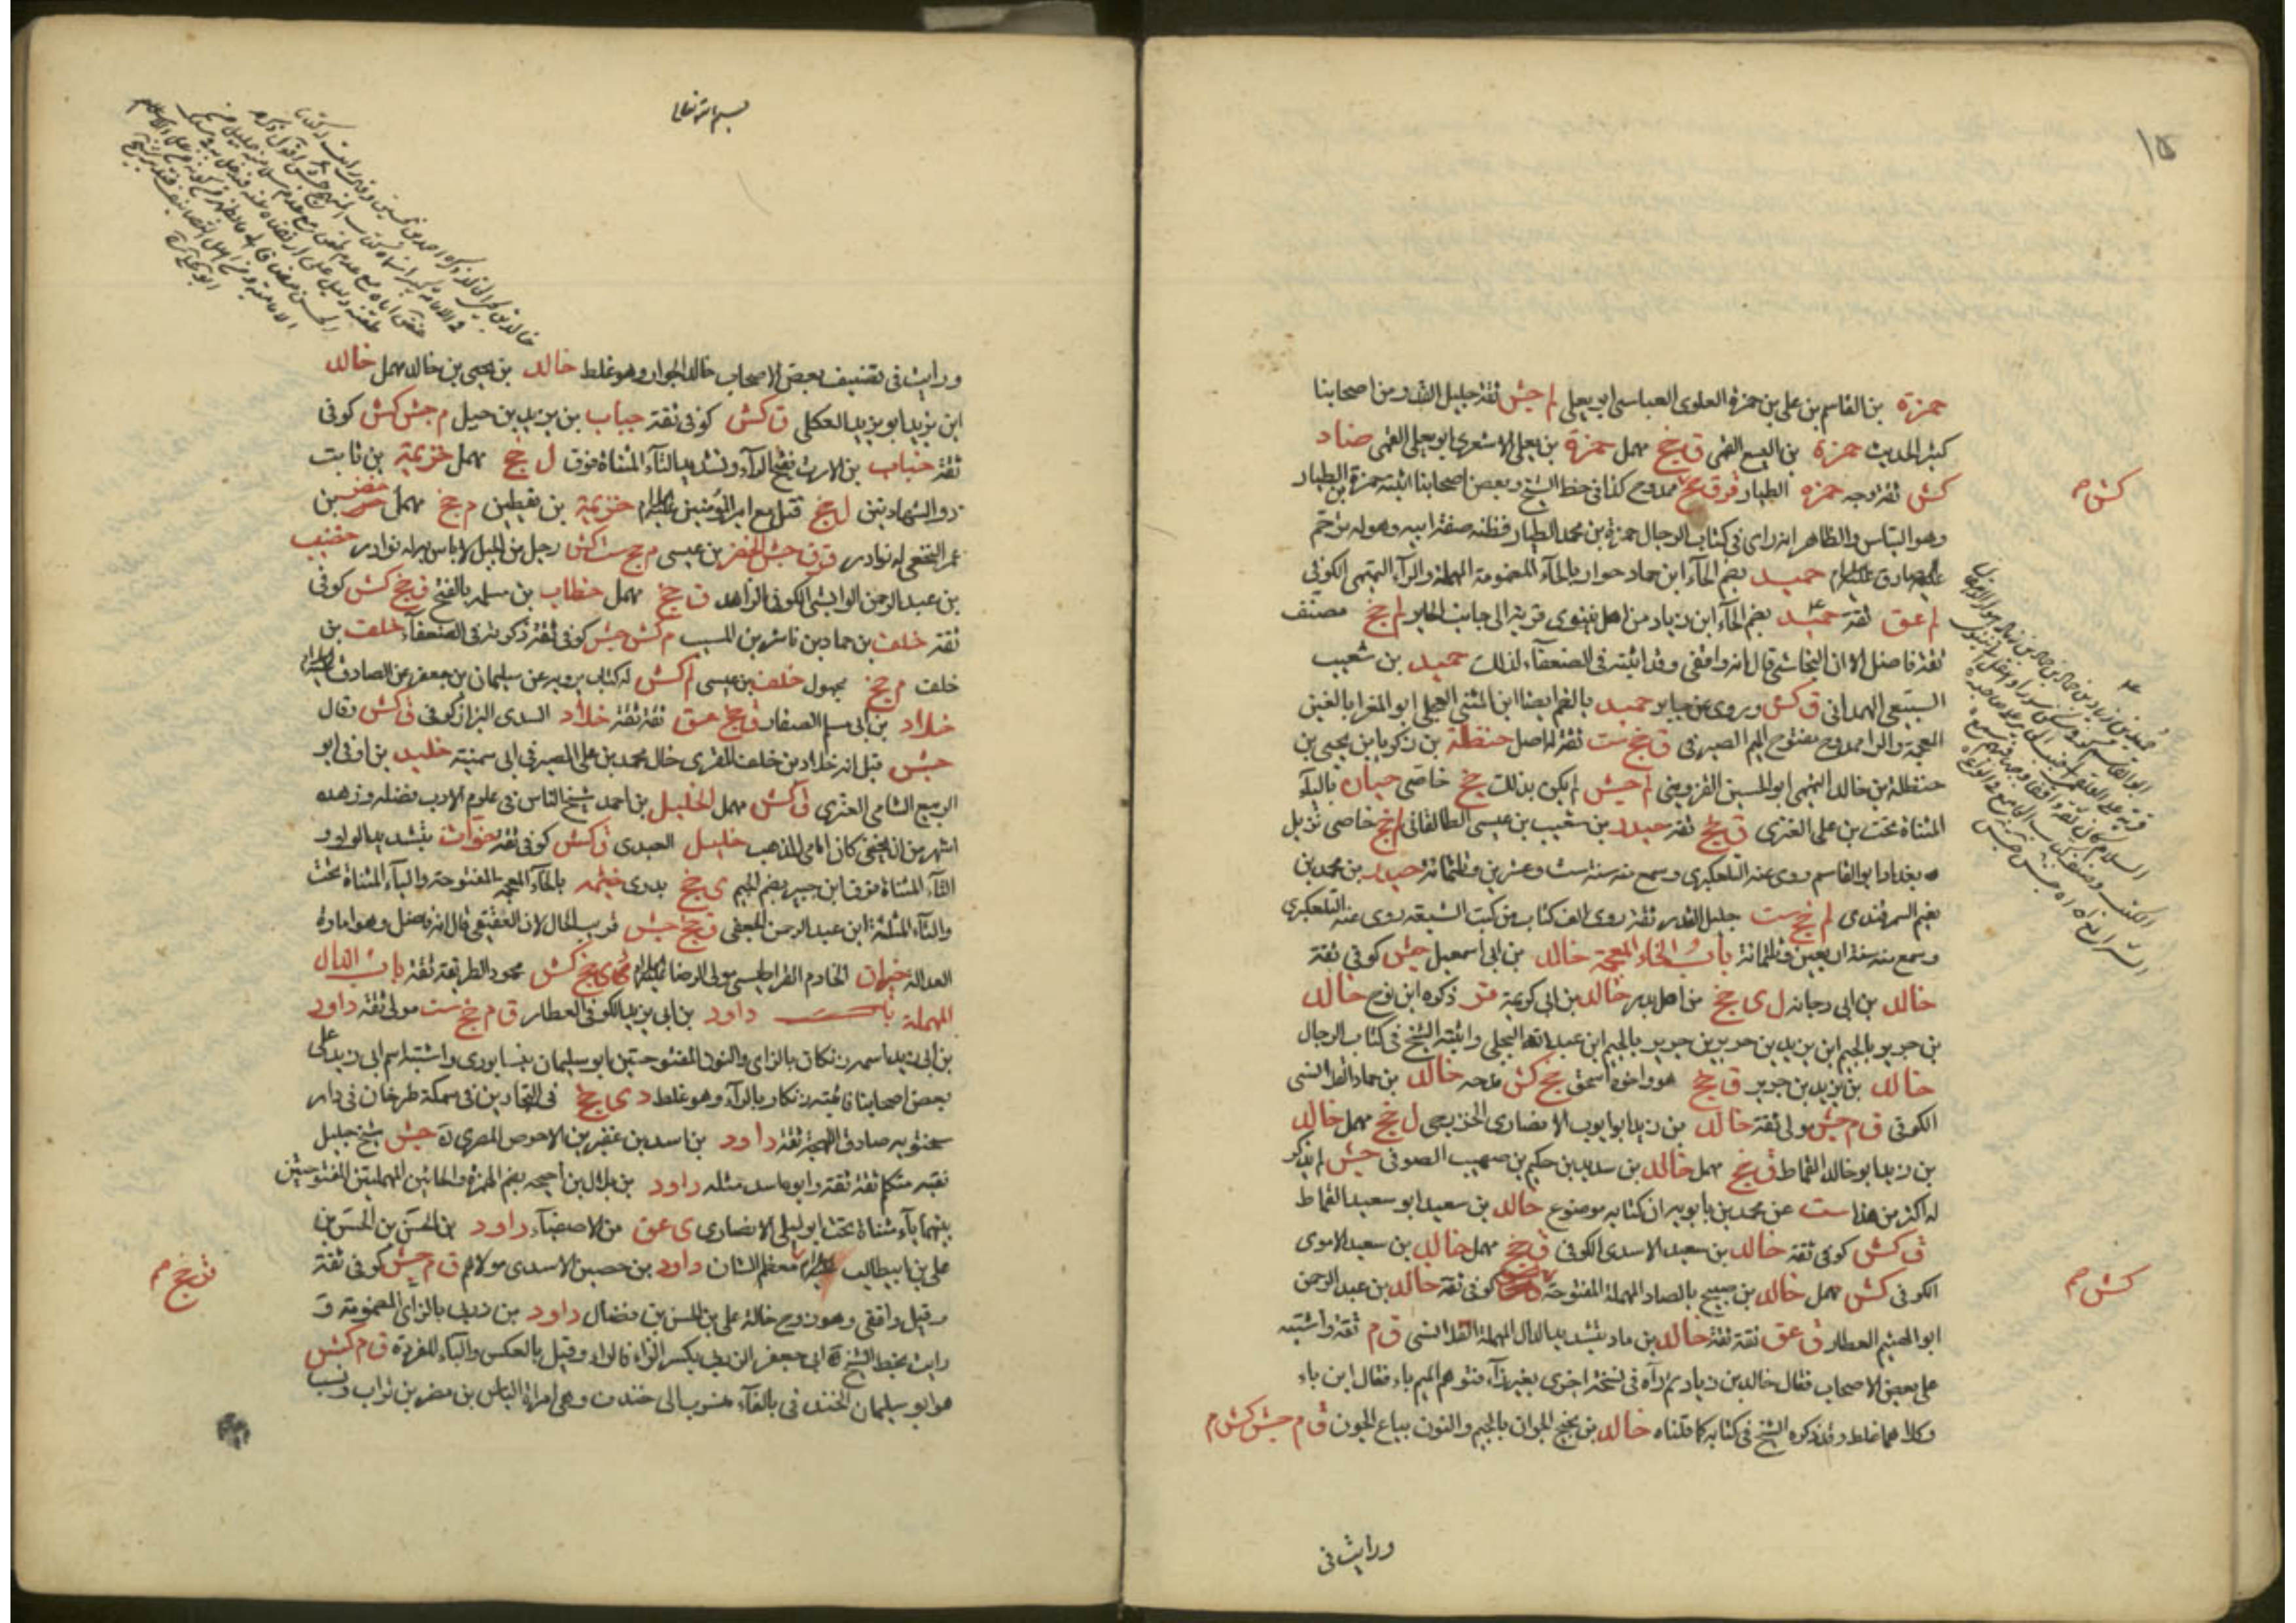 ١٥
حمزة بن القاسم بن علي بن حمزة العلوي العباسي ابو يعلى لم جش ثقة جليل القدر من اصحابنا
كثير الحديث حمزة بن اليسع القمي ق جخ مهمل حمزة بن يعلى الاشعري ابو يعلى القمي ضا د
كش ثقة وجه حمزه الطيار قر ق جخ ممدوح كذا في خط الشيخ وبعض اصحابنا اثبته حمزة بن الطيار
كش م
وهو التباس والظاهر انه راى في كتاب الرجال حمزة بن محمد الطيار فظنه صفة ابيه وهو له ترحم
عليه صادق عليه السلام حميد بضم الحاء ابن حماد حوار بالحاء المضمومة المهملة والراء التميمي الكوفي
لم عق ثقة حميد بضم الحاء ابن زياد من اهل نينوى قرية الى جانب الحاير لم جخ مصنف
ثقة فاضل الا ان النجاشي قال انه واقفي وقد اثبته في الضعفاء لذلك حميد بن شعيب
السبيعي الهمداني ق كش وروى عن جابر حميد بالضم ايضا ابن المثنى العجلي ابو المغرا بالغين
المعجمة والرا ممدوح مفتوح الميم الصيرفي ق جخ ست ثقة له اصل حنظلة بن زكريا بن يحيى بن
حنظلة بن خالد التميمي ابو الحسين القزويني لم جش لم يكن بذلك جخ خاصي حيان بالياء
المثناة تحت بن علي العنزي ق جخ ثقة حيدر بن شعيب بن عيسى الطالقاني لم جخ خاصي نزيل
بغداد ابو القاسم روى عنه التلعكبري وسمع منه سنة ست وعشرين وثلثمائة حيدر بن محمد بن
نعيم السمرقندي لم جخ ست جليل القدر ثقة روى الف كتاب من كتب الشيعة روى عنه التلعكبري
وسمع منه سنة اربعين وثلثمائة باب الخاء المعجمة خالد بن ابي اسمعيل جش كوفي ثقة
خالد بن ابي دجانه ل ي جخ من اهل بدر خالد بن ابي كريمة قر ذكره ابن نوح خالد
بن جرير بالجيم ابن يزيد بن جرير بن جرير بالجيم ابن عبد الله البجلي واثبته الشيخ في كتاب الرجال
خالد بن يزيد بن جرير ق جخ هو واخوه اسحق جخ كش مدحه خالد بن حماد القلانسي
الكوفي ق م جش مولى ثقة خالد بن زيد ابو ايوب الانصاري الخزرجي ل جخ مهمل خالد
بن زيد ابو خالد القماط ق جخ مهمل خالد بن سدير بن حكيم بن صهيب الصوفي جش لم يذكر
له اكثر من هذا ست عن محمد بن بابويه ان كتابه موضوع خالد بن سعيد ابو سعيد القماط
ق كش كوفي ثقة خالد بن سعيد الاسدي الكوفي ق جخ مهمل خالد بن سعيد الاموي
الكوفي كش مهمل خالد بن صبيح بالصاد المهملة المفتوحة كوفي ثقة خالد بن عبد الرحمن
كش م
ابو الهيثم العطار ق عق ثقة ثقة خالد بن ماد بتشديد الدال المهملة القلانسي ق م ثقة واشتبه
على بعض الاصحاب فقال خالد بن زياد ثم رآه في نسخة اخرى بغير زاء فتوهم الميم باء فقال ابن باد
وكلاهما غلط وقد ذكره الشيخ في كتابه كما قلناه خالد بن نجيح الجوان بالجيم والنون بياع الجون ق م جش كش م
ورايت في
بسم الله تعالى
ورايت في تصنيف بعض الاصحاب خالد الجوار وهو غلط خالد بن يحيى بن خالد مهمل خالد
ابن يزيد ابو يزيد العكلي ق كش كوفي ثقة خباب بن يزيد بن جبل م جش كش كوفي
ثقة خباب بن الارت بفتح الراء وتشديد التاء المثناة فوق ل جخ مهمل خزيمة بن ثابت
ذو الشهادتين ل جخ قتل مع امير المؤمنين عليه السلام خزيمة بن يقطين م جخ مهمل خضر بن
عمر النخعي له نوادر ق ق جش الخضر بن عيسى م جخ ست كش رجل من الجبل لا باس به له نوادر خضيب
بن عبد الرحمن الوابشي الكوفي الزاهد ق جخ مهمل خطاب بن مسلمة بالفتح ق جخ كش كوفي
ثقة خلف بن حماد بن ناشر بن المسيب م كش جش كوفي ثقة ذكرته في الضعفاء خلف بن
خلف م جخ مجهول خلف بن عيسى لم كش له كتاب يرويه عن سليمان بن جعفر عن الصادق عليه السلام
خلاد بن ابي مسلم الصفار ق جخ عق ثقة ثقة خلاد السدي البزاز كوفي ق كش وقال
جش قيل انه خلاد بن خلف المقري خال محمد بن علي الصيرفي ابي سمينة خليد بن اوفى ابو
الربيع الشامي العنزي ق كش مهمل الخليل بن احمد شيخ الناس في علوم الادب فضله وزهده
اشهر من ان يخفى كان امامي المذهب خليل العبدي ق كش كوفي ثقة خوات بتشديد الواو و
التاء المثناة فوق ابن جبير بضم الجيم ي جخ بدري خيثمه بالخاء المعجمة المفتوحة والياء المثناة تحت
والثاء المثلثة ابن عبد الرحمن الجعفي ق جخ جش قريب الحال لان العقيقي قال انه فاضل وهو امارة
العدالة خيران الخادم القراطيسي مولى الرضا عليه السلام جخ كش محمود الطريقة ثقة باب الدال
المهملة باب داود بن ابي يزيد الكوفي العطار ق م جخ ست مولى ثقة داود
بن ابي زيد اسمه زنكان بالزاى والنون المفتوحتين ابو سليمان نيسابوري واشتبه اسم ابي زيد على
بعض اصحابنا فاثبته زنكار بالراء وهو غلط دي جخ في النجادين في سكة طرخان في دار
سختويه صادق اللهجة ثقة داود بن اسد بن عفير بن الاحوص المصري جش شيخ جليل
فقيه متكلم ثقة ثقة وابوه اسد مثله داود بن بلال بن احيحه بضم الهمزة والحائين المهملتين المفتوحتين
بينهما ياء مثناة تحت ابو ليلى الانصاري ي عق من الاصفياء داود بن الحسن بن الحسن بن
علي بن ابيطالب عليه السلام معظم الشان داود بن حصين الاسدي مولاهم ق م جش كوفي ثقة
ق جخ م
وقيل واقفي وهو زوج خالة علي بن الحسن بن فضال داود بن زربي بالزاي المضمومة و
رايت بخط الشيخ ابي جعفر الزربي بكسر الزاء فالراء وقيل بالعكس والباء المفردة ق م كش
هو ابو سليمان الخندفي بالفاء منسوب الى خندف وهي امراة الياس بن مضر بن نزار ونسب